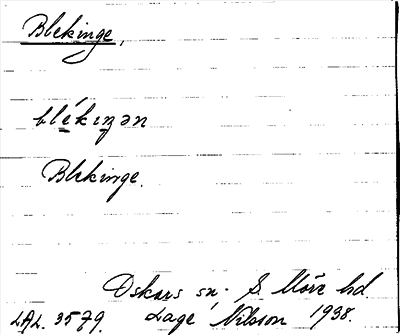 Blekinge,
blékıŋən
Blekinge.
Oskars sn; S. Möre hd.
LAL. 3579. Lage Nilsson 1938.